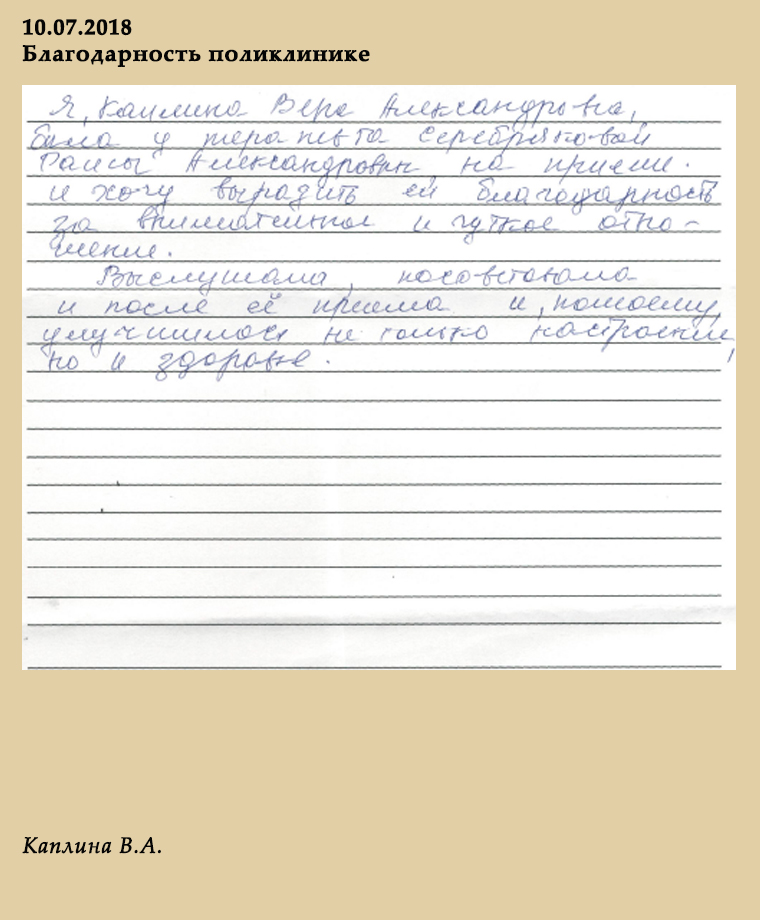 10.07.2018
Благодарность поликлинике
Я, Каплина Вера Александровна,
была у терапевта Серебряковой
Раисы Александровны на приеме.
и хочу выразить ей благодарность
за внимательное и чуткое отно-
шение.
Выслушала, посоветовала
и после её приема и, помоему,
улучшилось не только настроение,
но и здоровье.
Каплина В.А.